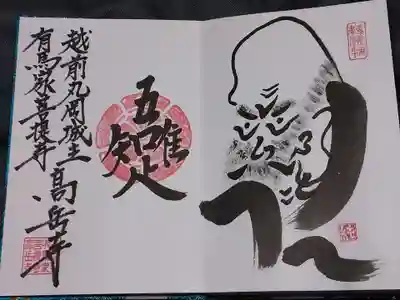 吾唯知足
越前丸岡城主
有馬家菩提寺
高岳寺